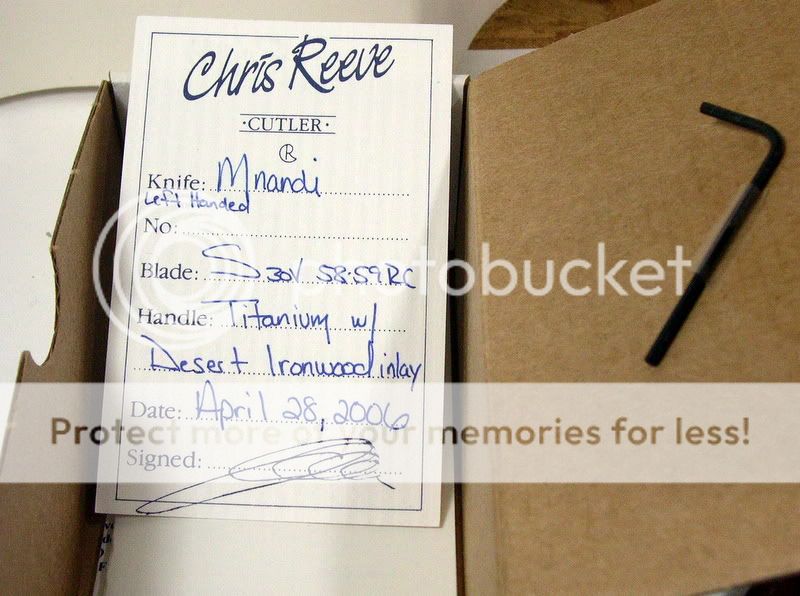 Chris Reeve
·CUTLER·
R
Knife: Mnandi
Left Handed
No:
Blade: S30V 58-59RC
Handle: Titanium w/
Desert Ironwood inlay
Date: April 28, 2006
Signed:
photobucket
Protect more of your memories for less!